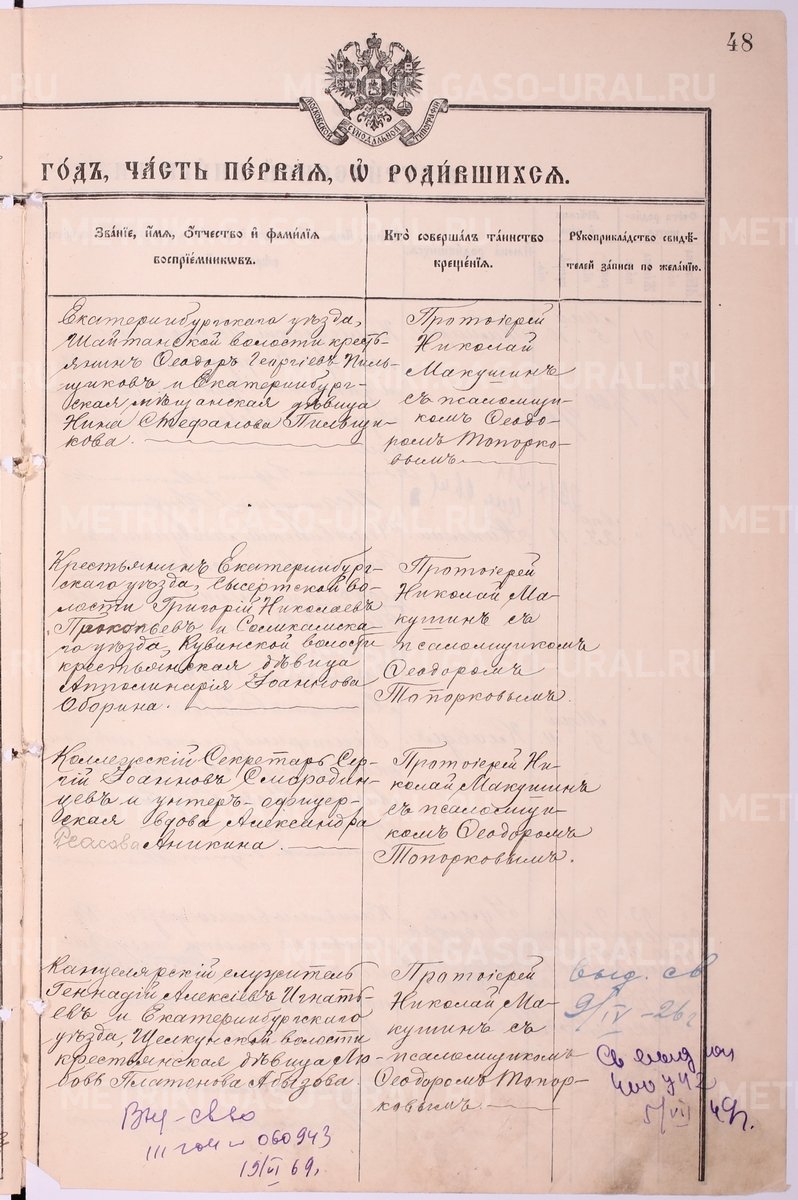 48
МОСКОВСКОЙ СѴНОДАЛЬНОЙ ТИПОГРАФІИ
ГО́ДЪ, ЧА́СТЬ ПЕ́РВАЯ, Ѡ҆ РОДИ́ВШИХСЯ.
ЗВА́НІЕ, И҆́МЯ, О҆́ТЧЕСТВО И҆ ФАМИ́ЛІЯ
ВОСПРІЕ́МНИКѠВЪ.
КТО̀ СОВЕРША́ЛЪ ТА́ИНСТВО
КРЕЩЕ́НІЯ.
РꙋКОПРИКЛА́ДСТВО СВИДѢ́-
ТЕЛЕЙ ЗА́ПИСИ ПО ЖЕЛА́НІЮ.
Екатеринбургскаго уѣзда,
Шайтанской волости кресть-
янинъ Ѳеодоръ Георгіевъ Пиль-
щиковъ и Екатеринбург-
ская мѣщанская дѣвица
Нина Стефанова Пильщи-
кова.
Протоіерей
Николай
Макушинъ
съ псаломщи-
комъ Ѳеодо-
ромъ Топорко-
вымъ
Крестьянинъ Екатеринбург-
скаго уѣзда, Сысертской во-
лости Григорій Николаевъ
Прокопьевъ и Соликамска-
го уѣзда, Кувинской волости
крестьянская дѣвица
Апполинарія Іоаннова
Оборина.
Протоіерей
Николай Ма-
кушинъ съ
псаломщикомъ
Ѳеодоромъ
Топорковымъ.
Коллежскій Секретарь Сер-
гій Іоанновъ Смородин-
цевъ и унтеръ-офицер-
ская вдова Александра
Аникина.
Протоіерей Ни-
колай Макушинъ
съ псаломщи-
комъ Ѳеодоромъ
Топорковымъ.
Канцелярскій служитель
Геннадій Алексіевъ Игнать-
евъ и Екатеринбургскаго
уѣзда, Щелкунской волости
крестьянская дѣвица Лю-
бовь Платонова Абызова.
Протоіерей
Николай Ма-
кушинъ съ
псаломщикомъ
Ѳеодоромъ Топор-
ковымъ
выд. св
9/IV -26г
Св выд
5/VII 49г.
Выд-св-во
III 060943
19/VI 69г.
METRIKI.GASO-URAL.RU